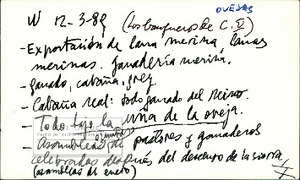 OVEJAS
W 12-3-89 (Los banqueros de C. V)
- Exportación de lana merina, lanas
merinas. Ganadería merina.
- ganado, cabaña, grey
- Cabaña real: todo ganado del Reino.
- Todo bajo la uña de la oveja.
- Asambleas de pastores y ganaderos
celebradas después del descargo de la sierra,
(asambleas de enero)